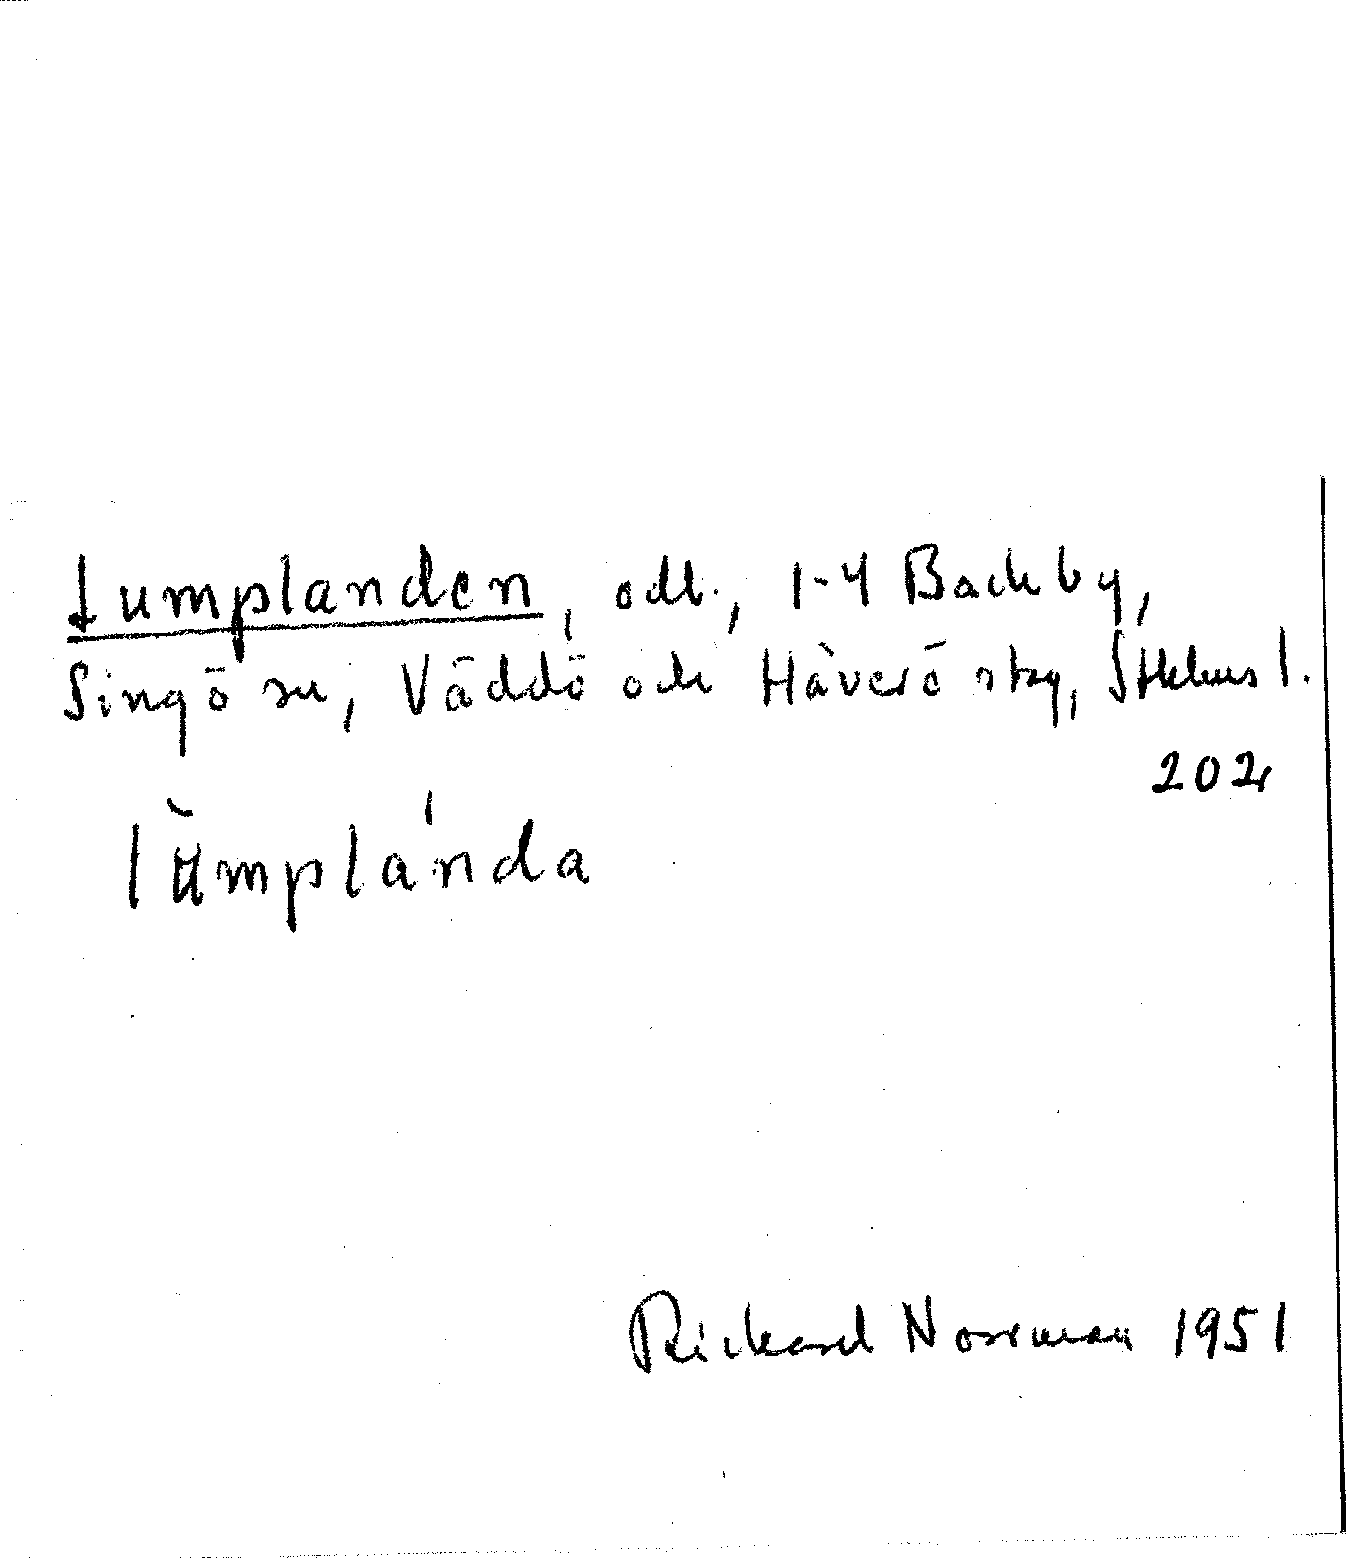 Lumplanden, odl., 1-4 Backby,
Singö sn, Väddö och Häverö skg, Sthlms l.
202
lùmplánda
Rickard Norrman 1951